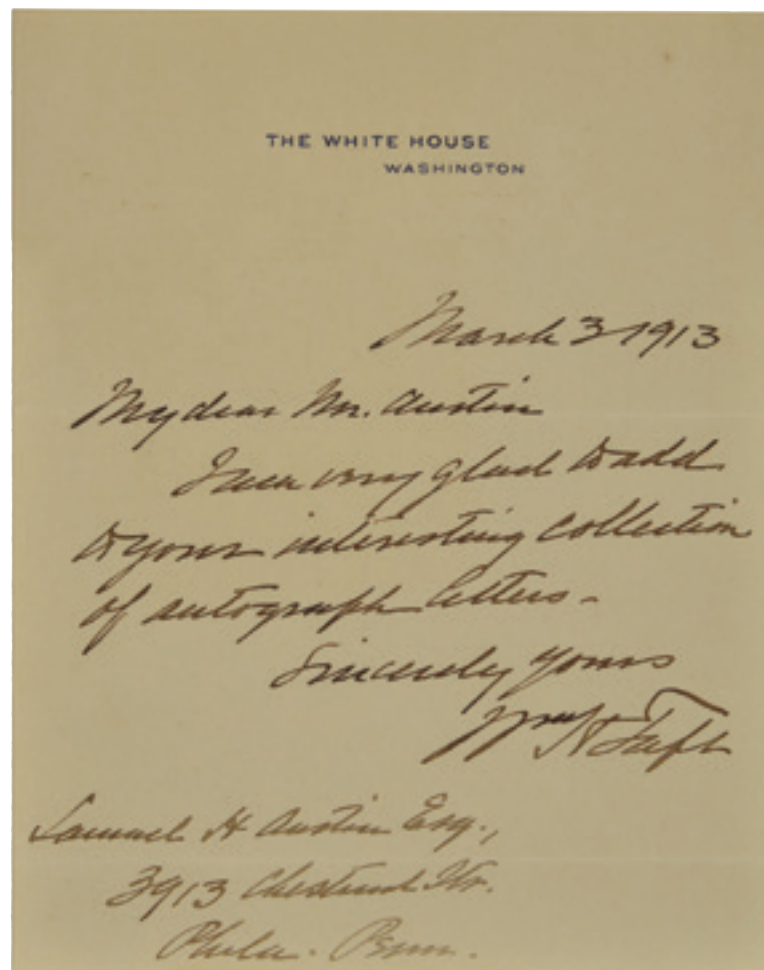 THE WHITE HOUSE
WASHINGTON
March 3 1913
My dear Mr. Austin
I am very glad to add
to your interesting collection
of autograph letters.
Sincerely yours
Wm H Taft
Samuel H Austin Esq.,
3913 Chestnut Str.
Phila. Penn.